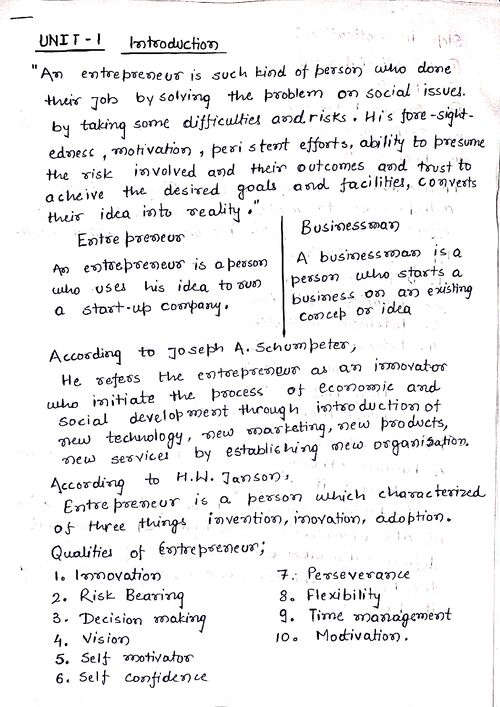 UNIT-1 Introduction
"An entrepreneur is such kind of person who done
their job by solving the problem on social issues.
by taking some difficulties and risks. His fore-sight-
edness, motivation, peri stent efforts, ability to presume
the risk involved and their outcomes and trust to
acheive the desired goals and facilities, converts
their idea into reality."
Entre preneur
An entrepreneur is a person
who uses his idea to run
a start-up company.
Businessman
A businessman is a
person who starts a
business on an existing
concep or idea
According to Joseph A. Schumpeter,
He refers the entrepreneur as an innovator
who initiate the process of economic and
social development through introduction of
new technology, new marketing, new products,
new services by establishing new organisation.
According to H.W. Janson,
Entre preneur is a person which characterized
of three things invention, inovation, adoption.
Qualities of Entrepreneur;
1. Innovation
2. Risk Bearing
3. Decision making
4. Vision
5. Self motivator
6. Self confidence
7. Perseverance
8. Flexibility
9. Time management
10. Modtivation.